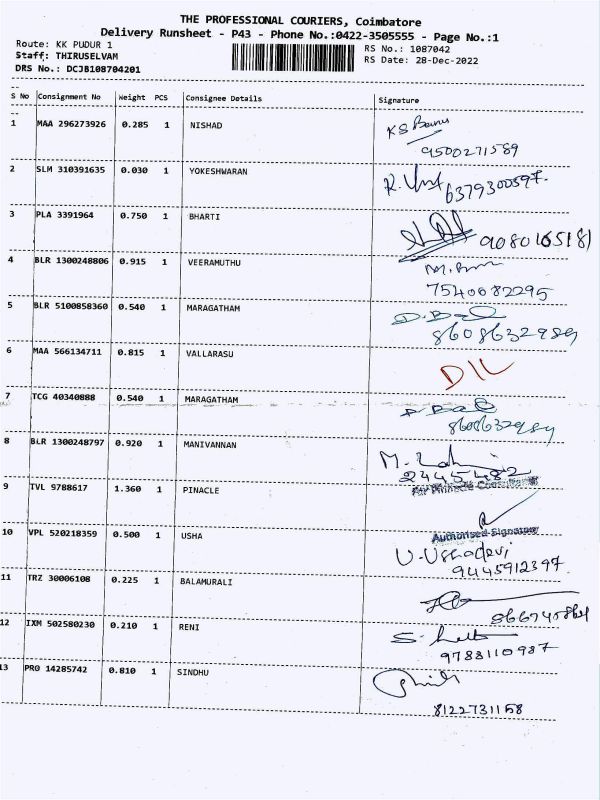 THE PROFESSIONAL COURIERS, Coimbatore
Delivery Runsheet - P43 - Phone No.:0422-3505555 - Page No.:1
Route: KK PUDUR 1
Staff: THIRUSELVAM
DRS No.: DCJB108704201
RS No.: 1087042
RS Date: 28-Dec-2022
S No Consignment No Weight PCS Consignee Details Signature
1 MAA 296273926 0.285 1 NISHAD KS
9500271589
2 SLM 310391635 0.030 1 YOKESHWARAN R.
6379300597.
3 PLA 3391964 0.750 1 BHARTI
9080165181
4 BLR 1300248806 0.915 1 VEERAMUTHU M.
7540082295
5 BLR 5100858360 0.540 1 MARAGATHAM
8608632989
6 MAA 566134711 0.815 1 VALLARASU D/L
7 TCG 40340888 0.540 1 MARAGATHAM
8608632989
8 BLR 1300248797 0.920 1 MANIVANNAN M.
2445482
9 TVL 9788617 1.360 1 PINACLE
Authorised Signatory
10 VPL 520218359 0.500 1 USHA U.Ushadevi
9445912397.
11 TRZ 30006108 0.225 1 BALAMURALI
12 IXM 502580230 0.210 1 RENI S.
9788110987
13 PRO 14285742 0.810 1 SINDHU
8122731158